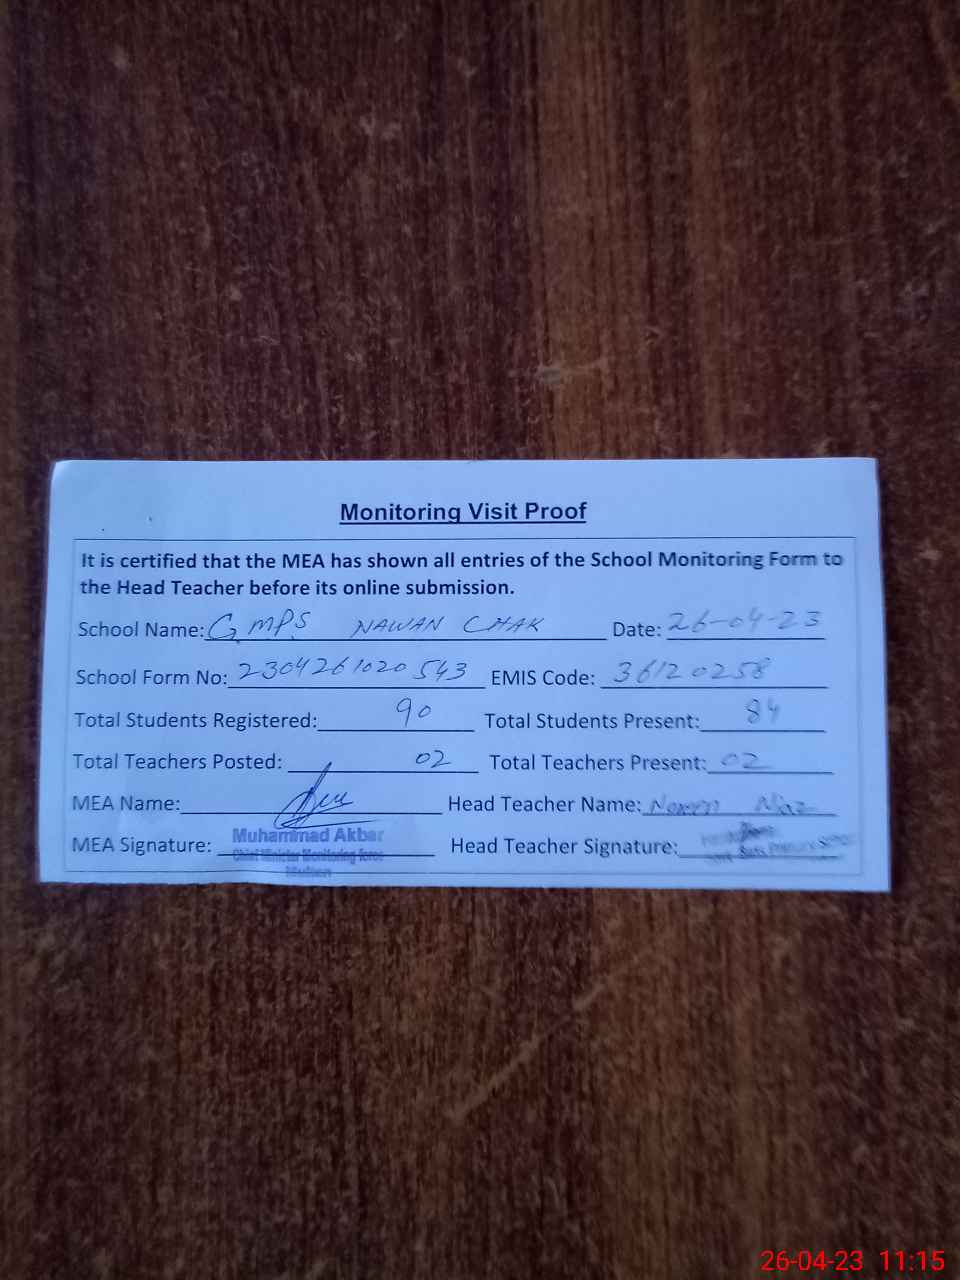 Monitoring Visit Proof
It is certified that the MEA has shown all entries of the School Monitoring Form to
the Head Teacher before its online submission.
School Name: GMPS NAWAN CHAK Date: 26-04-23
School Form No: 2304261020543 EMIS Code: 36120258
Total Students Registered: 90 Total Students Present: 84
Total Teachers Posted: 02 Total Teachers Present: 02
MEA Name: Head Teacher Name: Niaz
MEA Signature: Muhammad Akbar Head Teacher Signature:
Chief Minister Monitoring force
Multan
26-04-23 11:15